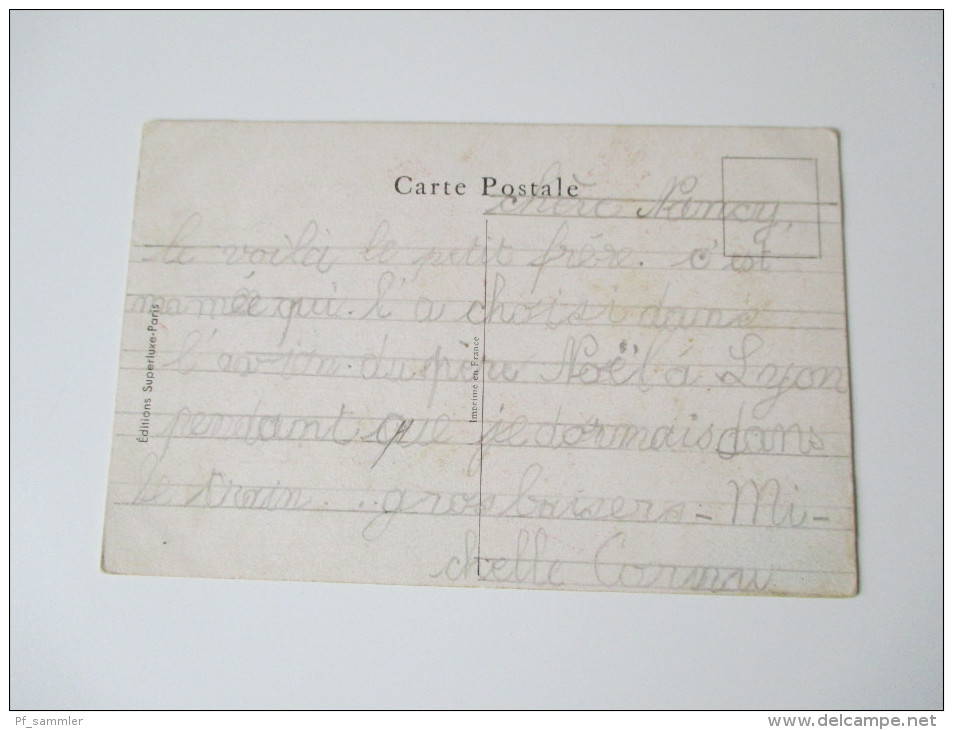 Carte Postale
chère Nancy,
le voilà le petit frère. c'est
ma mée qui l'a choisi dans
l'avion du père Noël à Lyon
pendant que je dormais dans
le train... gros baisers - Mi-
chelle
Éditions Superluxe-Paris
Imprimé en France
Pf_sammler
www.delcampe.net